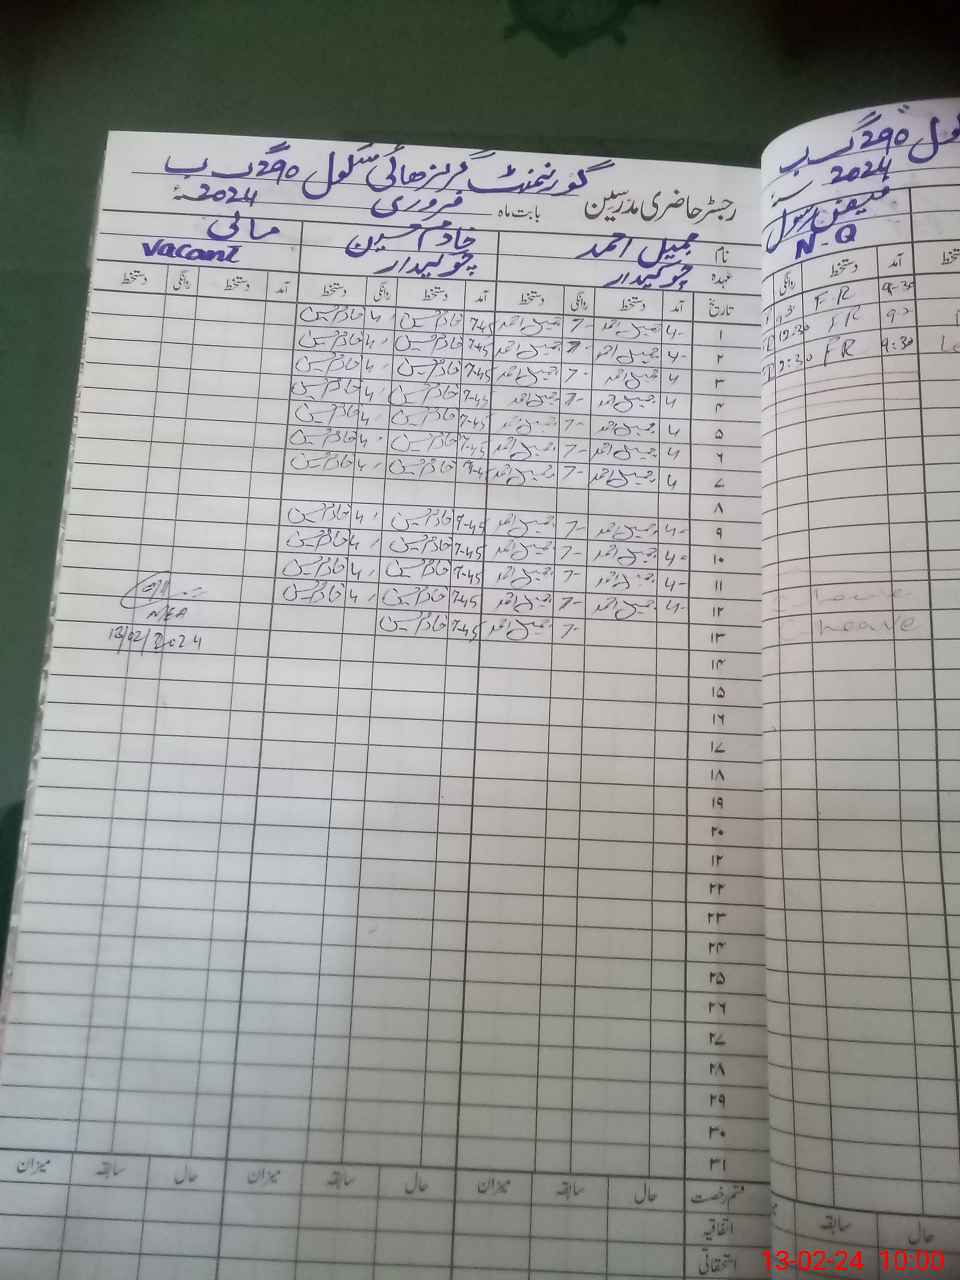 گورنمنٹ گرلز ھائی سکول 290 گ ب
رجسٹر حاضری مدرسین بابت ماہ فروری 2024ء
نام جمیل احمد خادم حسین مالی
عہدہ چوکیدار چوکیدار Vacant
تاریخ آمد دستخط روانگی دستخط آمد دستخط روانگی دستخط آمد دستخط روانگی دستخط
۱ 4- جمیل احمد 7- جمیل احمد 7-45 خادم حسین 4 خادم حسین
۲ 4- جمیل احمد 7- جمیل احمد 7-45 خادم حسین 4 خادم حسین
۳ 4 جمیل احمد 7- جمیل احمد 7-45 خادم حسین 4 خادم حسین
۴ 4 جمیل احمد 7- جمیل احمد 7-45 خادم حسین 4 خادم حسین
۵ 4 جمیل احمد 7- جمیل احمد 7-45 خادم حسین 4 خادم حسین
۶ 4 جمیل احمد 7- جمیل احمد 7-45 خادم حسین 4 خادم حسین
۷ 4 جمیل احمد 7- جمیل احمد خادم حسین 4 خادم حسین
۸
۹ 4- جمیل احمد 7- جمیل احمد 7-45 خادم حسین 4 خادم حسین
۱۰ 4- جمیل احمد 7- جمیل احمد 7-45 خادم حسین 4 خادم حسین
۱۱ 4- جمیل احمد 7- جمیل احمد 7-45 خادم حسین 4 خادم حسین
۱۲ 4- جمیل احمد 7- جمیل احمد 7-45 خادم حسین 4 خادم حسین
۱۳ 7- جمیل احمد 7-45 خادم حسین
MEA
13/02/2024
۱۴
۱۵
۱۶
۱۷
۱۸
۱۹
۲۰
۲۱
۲۲
۲۳
۲۴
۲۵
۲۶
۲۷
۲۸
۲۹
۳۰
۳۱
قسم رخصت حال سابقہ میزان حال سابقہ میزان حال سابقہ میزان
اتفاقیہ
استحقاقی
سکول 290 گ ب
2024
فیض رسول
N-Q
آمد دستخط روانگی
9-30 FR
FR 12:30
9:30 FR 12:30
C-leave
C-leave
حال سابقہ
13-02-24 10:00